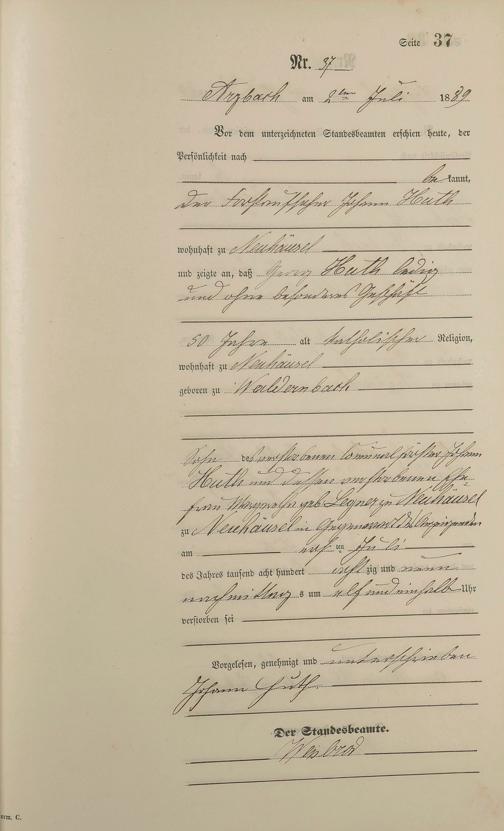 Seite 37
Nr. 37
Arzbach am 2ten Juli 1889
Vor dem unterzeichneten Standesbeamten erschien heute, der
Persönlichkeit nach
be kannt,
der Forstaufseher Johann Huth
wohnhaft zu Neuhäusel
und zeigte an, daß Georg Huth ledig
und ohne besonderes Geschäft
50 Jahre alt katholischer Religion,
wohnhaft zu Neuhäusel
geboren zu Waldernbach
Sohn des verstorbenen Johann
Huth und dessen verstorbenen Ehe
frau geb. Legner zu Neuhäusel
zu Neuhäusel in Gegenwart des Anzeigenden
am ten Juli
des Jahres tausend acht hundert acht zig und neun
nachmittag s um elf und einhalb Uhr
verstorben sei
Vorgelesen, genehmigt und unterschrieben
Johann Huth
Der Standesbeamte.